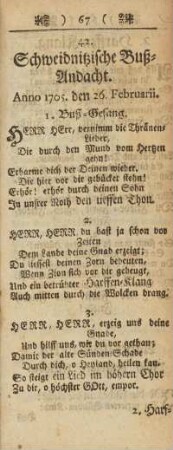 ) 67 (
42.
Schweidnitzische Buß-
Andacht.
Anno 1705. den 26. Februarii.
1. Buß-Gesang.
HERR HErr, vernimm die Thränen-
Lieder,
Die durch den Mund vom Hertzen
gehn!
Erbarme dich der Deinen wieder,
Die hier vor dir gebücket stehn!
Erhör! erhör durch deinen Sohn
In unsrer Noth den tieffen Thon.
2.
HERR, HERR, du hast ja schon vor
Zeiten
Dem Lande deine Gnad erzeigt;
Du liessest deinen Zorn bedeuten,
Wenn Zion sich vor dir gebeugt,
Und ein betrübter Harffen-Klang
Auch mitten durch die Wolcken drang.
3.
HERR, HERR, erzeig uns deine
Gnade,
Und hilff uns, wie du vor gethan;
Damit der alte Sünden-Schade
Durch dich, o Heyland, heilen kan.
So steiget ein Lied im höhern Chor
Zu dir, o höchster GOtt, empor.
2. Harf-